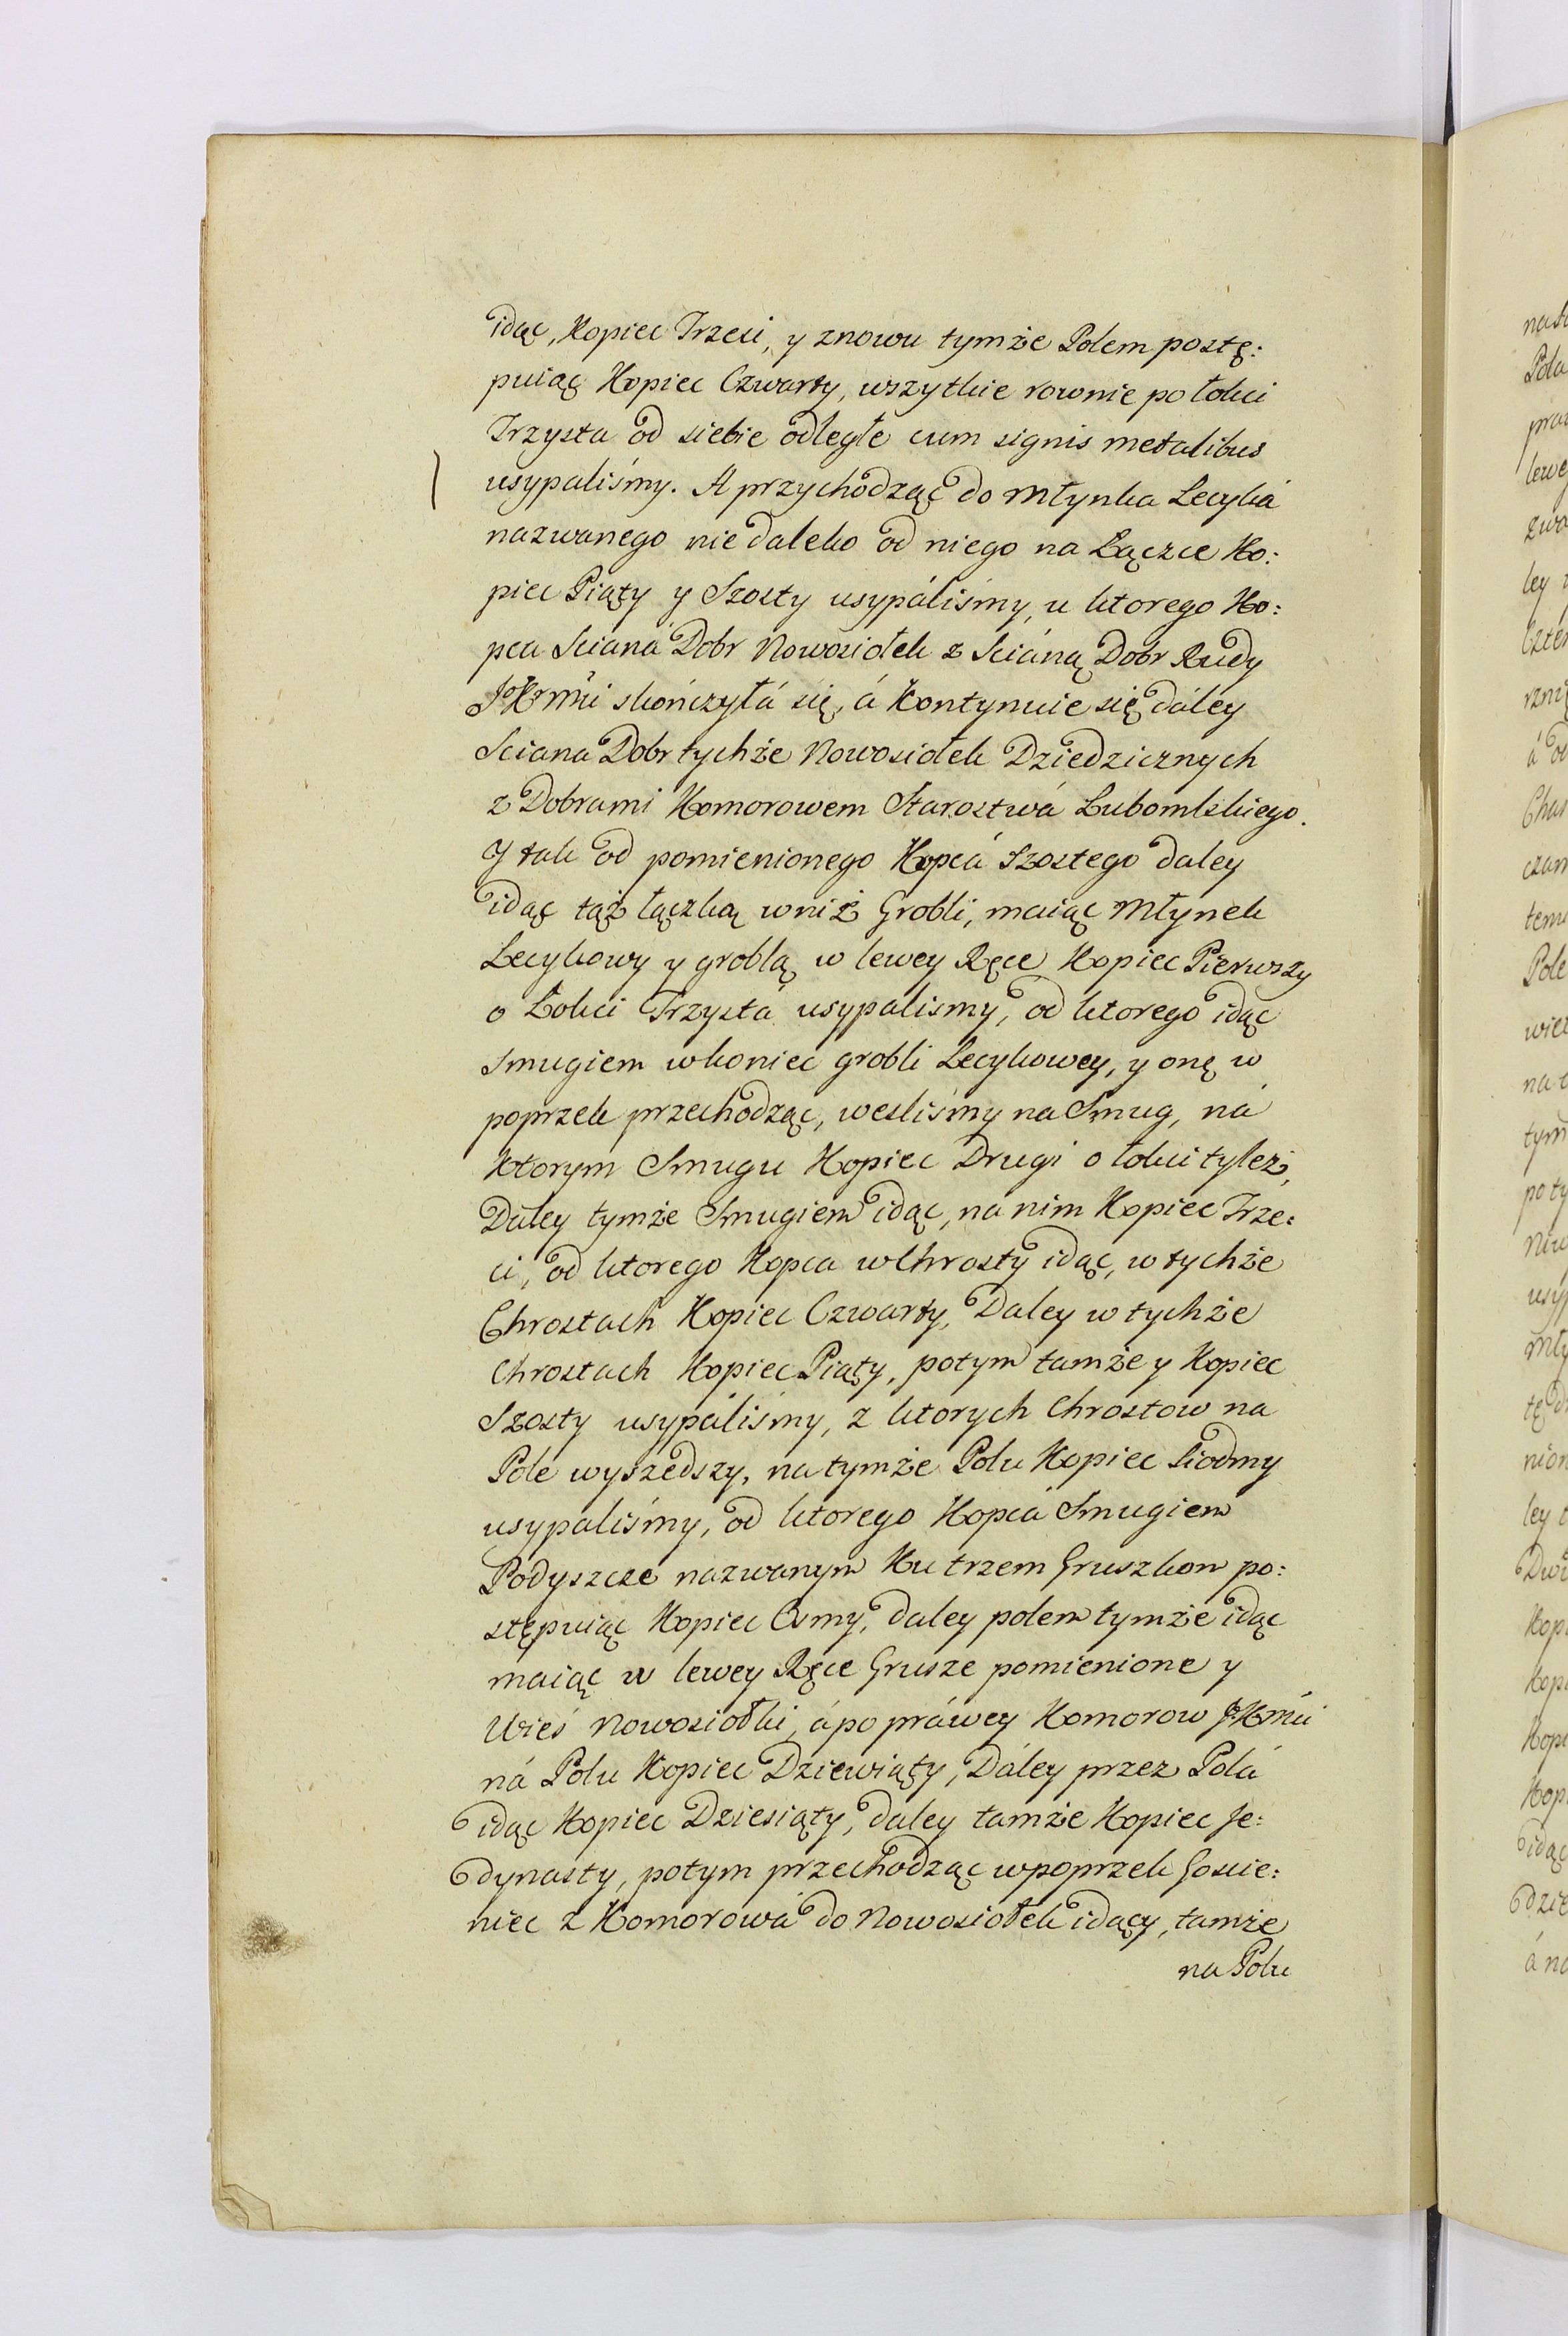 idąc, Kopiec Trzeci, y znowu tymże Polem postę:
puiąc Kopiec Czwarty, wszytkie rownie po łokci
Trzysta od siebie odległe cum signis metalibus
usypaliśmy. A przychodząc do Młynka Lecyká
nazwanego niedaleko od niego na Łączce Ko:
piec Piąty y Szosty usypáliśmy, u ktorego Ko:
pca Sciana Dobr Nowosiołek z Scianą Dobr Rudy
JKrMći skończyłá się, á Kontynuie się dáley
Sciana Dobr tychże Nowosiołek Dziedzicznych
z Dobrami Komorowem Starostwá Lubomlskiego.
Y tak od pomienionego Kopcá Szostego daley
idąc tąż łączką wniż Grobli, maiąc Młynek
Lecykowy y groblą w lewey Ręce Kopiec Pierwszy
o Łokci Trzystá usypalismy, od ktorego idąc
Smugiem wkoniec grobli Lecykowey, y onę w
poprzek przechodząc, weszliśmy na Smug, ná
ktorym Smugu Kopiec Drugi o łokci tyleż,
Dáley tymże Smugiem idąc, na nim Kopiec Trze:
ci, od ktorego Kopca wChrosty idąc, w tychże
Chrostach Kopiec Czwarty, Daley w tychże
Chrostach Kopiec Piąty, potym tamże y Kopiec
Szosty usypáliśmy, z ktorych Chrostow na
Pole wyszedszy, na tymże Polu Kopiec Siodmy
usypaliśmy, od ktorego Kopcá Smugiem
Podyszcze nazwanym Ku trzem Gruszkom po:
stępuiąc Kopiec Osmy, daley polem tymże idąc
maiąc w lewey Ręce Grusze pomienione y
Wieś Nowosiołki, á po práwey Komorow JKrMći
ná Polu Kopiec Dziewiąty, Dáley przez Polá
idąc Kopiec Dziesiąty, daley tamże Kopiec Je:
dynasty, potym przechodząc wpoprzek Goście:
niec z Komorowá do Nowosiołek idący, tamże
na Polu